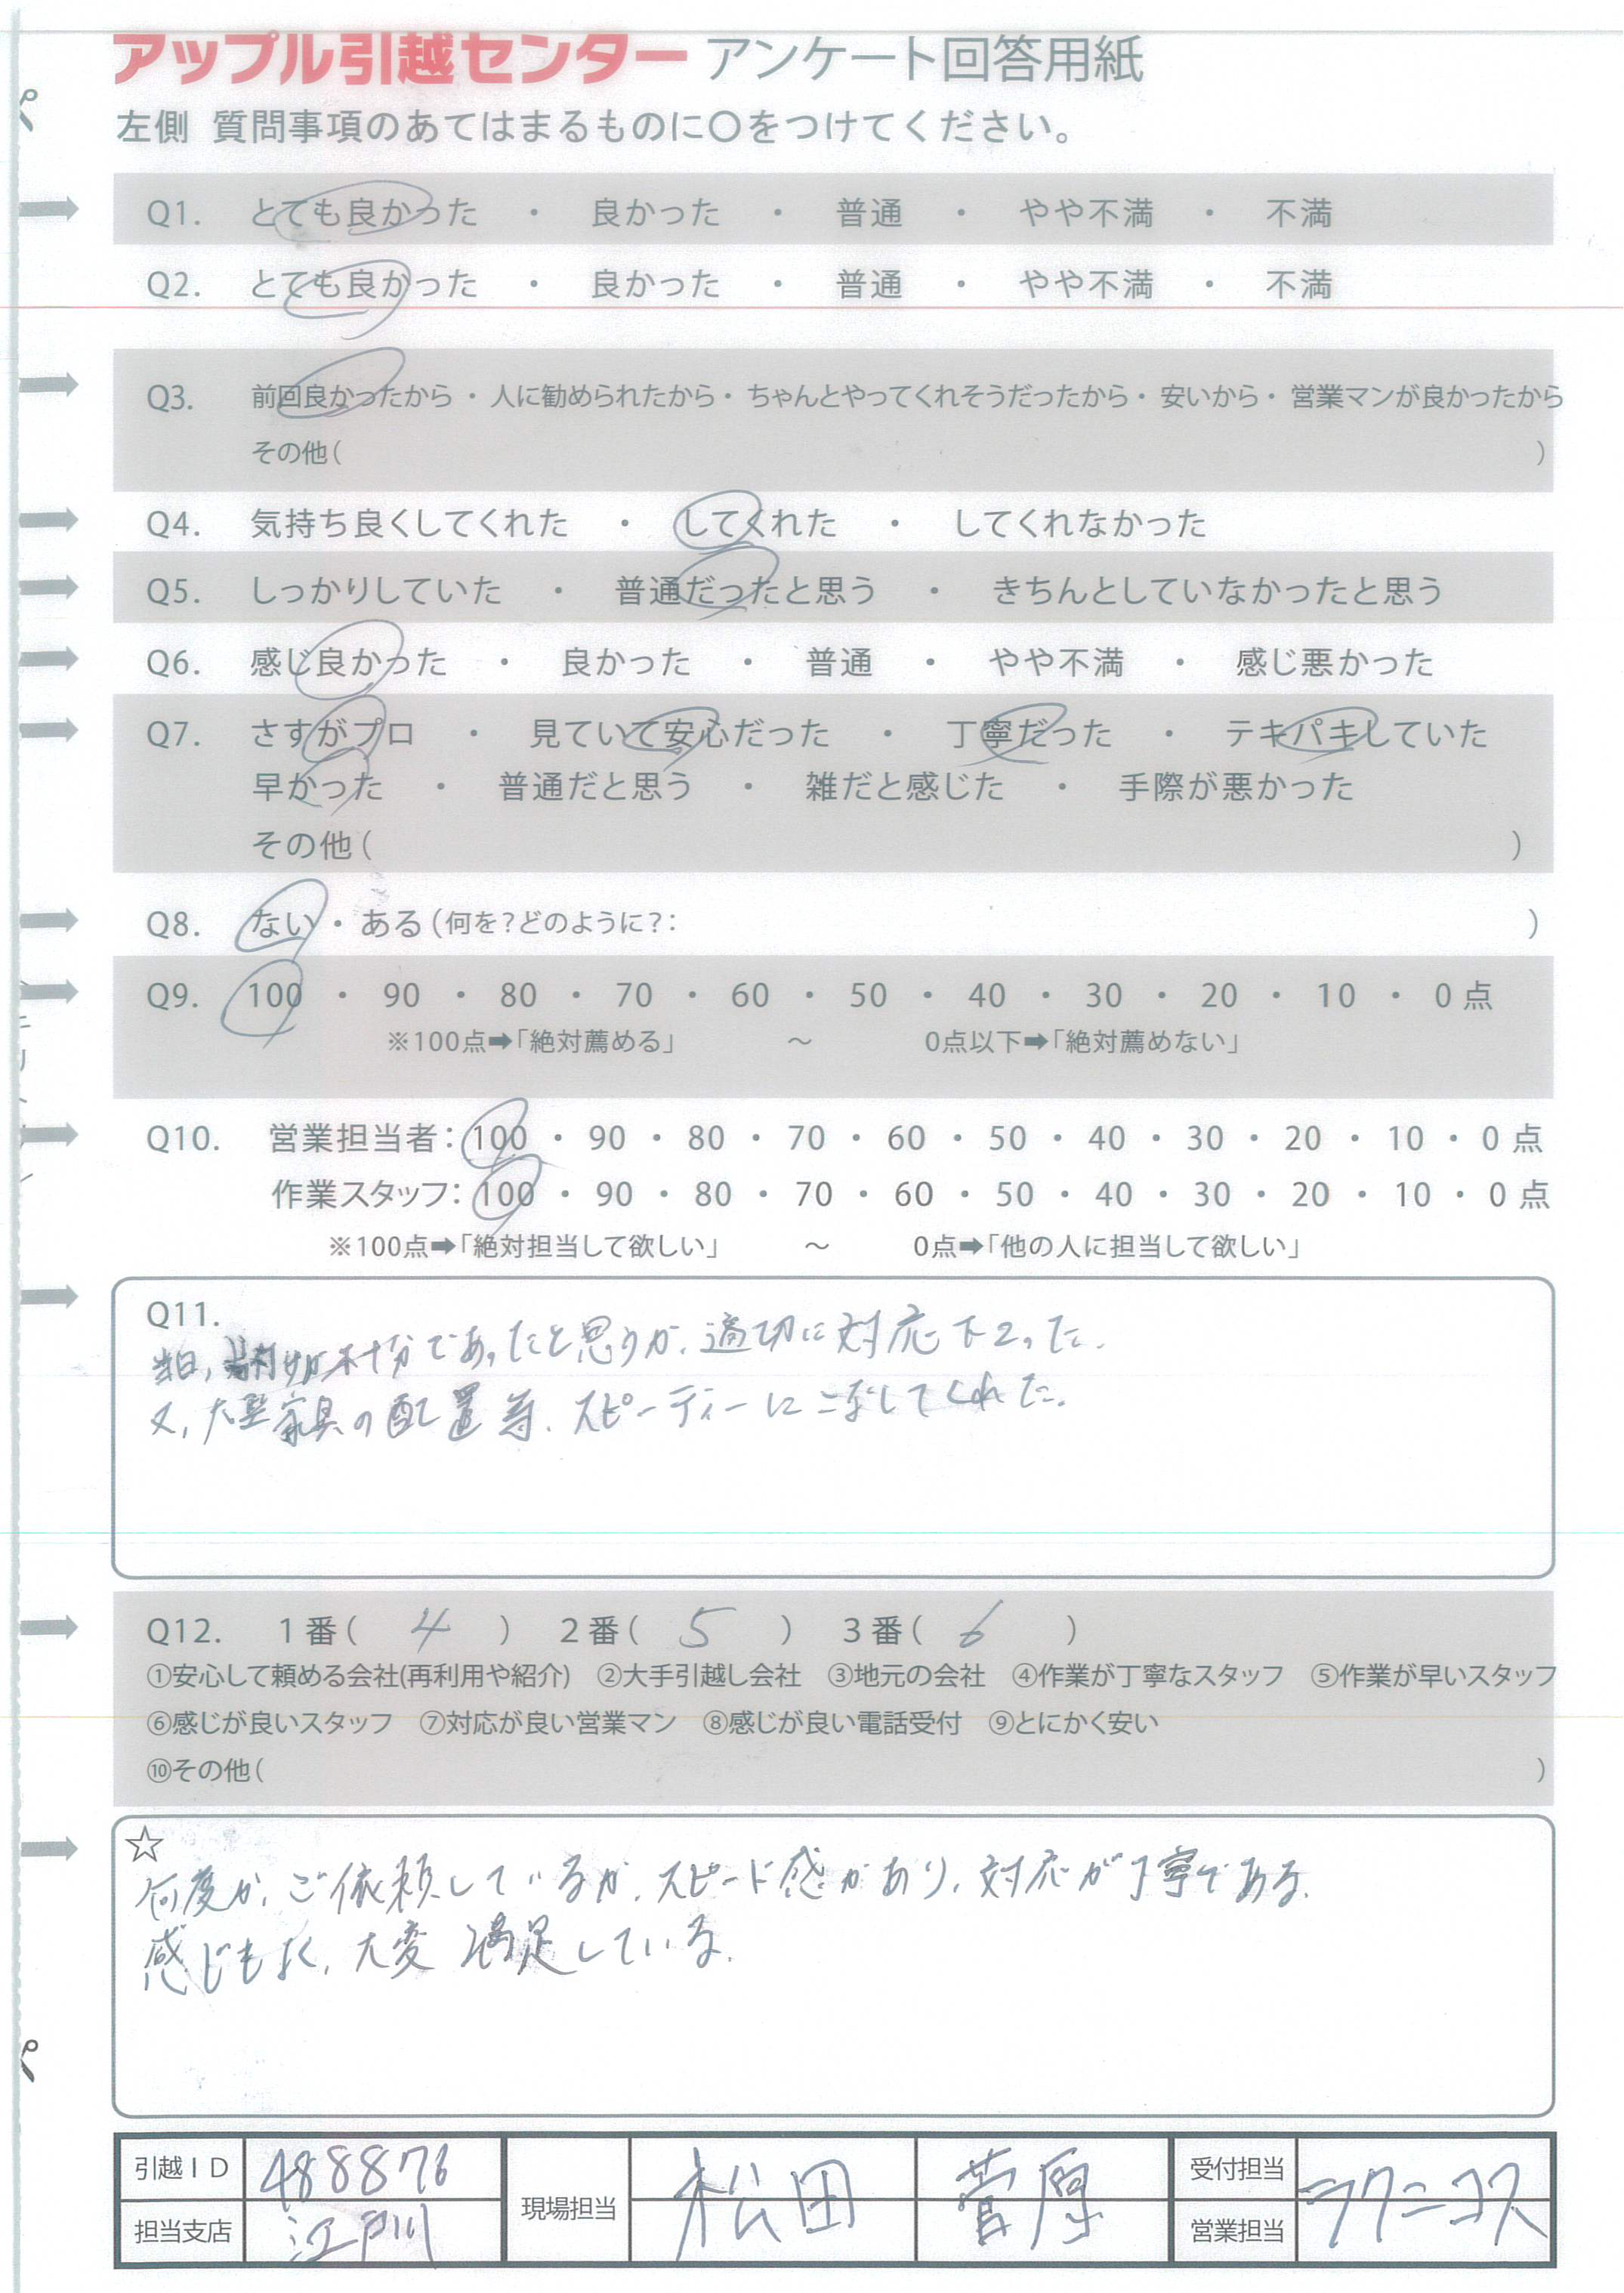 アップル引越センター アンケート回答用紙
左側 質問事項のあてはまるものに〇をつけてください。
Q1. とても良かった ・ 良かった ・ 普通 ・ やや不満 ・ 不満
Q2. とても良かった ・ 良かった ・ 普通 ・ やや不満 ・ 不満
Q3. 前回良かったから ・ 人に勧められたから ・ ちゃんとやってくれそうだったから ・ 安いから ・ 営業マンが良かったから
その他( )
Q4. 気持ち良くしてくれた ・ してくれた ・ してくれなかった
Q5. しっかりしていた ・ 普通だったと思う ・ きちんとしていなかったと思う
Q6. 感じ良かった ・ 良かった ・ 普通 ・ やや不満 ・ 感じ悪かった
Q7. さすがプロ ・ 見ていて安心だった ・ 丁寧だった ・ テキパキしていた
早かった ・ 普通だと思う ・ 雑だと感じた ・ 手際が悪かった
その他( )
Q8. ない ・ ある(何を?どのように?: )
Q9. 100 ・ 90 ・ 80 ・ 70 ・ 60 ・ 50 ・ 40 ・ 30 ・ 20 ・ 10 ・ 0 点
※100点➡「絶対薦める」 ～ 0点以下➡「絶対薦めない」
Q10. 営業担当者: 100 ・ 90 ・ 80 ・ 70 ・ 60 ・ 50 ・ 40 ・ 30 ・ 20 ・ 10 ・ 0 点
作業スタッフ: 100 ・ 90 ・ 80 ・ 70 ・ 60 ・ 50 ・ 40 ・ 30 ・ 20 ・ 10 ・ 0 点
※100点➡「絶対担当して欲しい」 ～ 0点➡「他の人に担当して欲しい」
Q11.
当日、不十分であったと思うが、適切に対応下さった。
又、大型家具の配置等、スピーディーにこなしてくれた。
Q12. 1番( 4 ) 2番( 5 ) 3番( 6 )
①安心して頼める会社(再利用や紹介) ②大手引越し会社 ③地元の会社 ④作業が丁寧なスタッフ ⑤作業が早いスタッフ
⑥感じが良いスタッフ ⑦対応が良い営業マン ⑧感じが良い電話受付 ⑨とにかく安い
⑩その他( )
☆
何度か、ご依頼しているが、スピード感があり、対応が丁寧である。
感じもよく、大変満足している。
引越ID 488876 現場担当 松田 菅原 受付担当 ラクニコス
担当支店 江戸川 営業担当